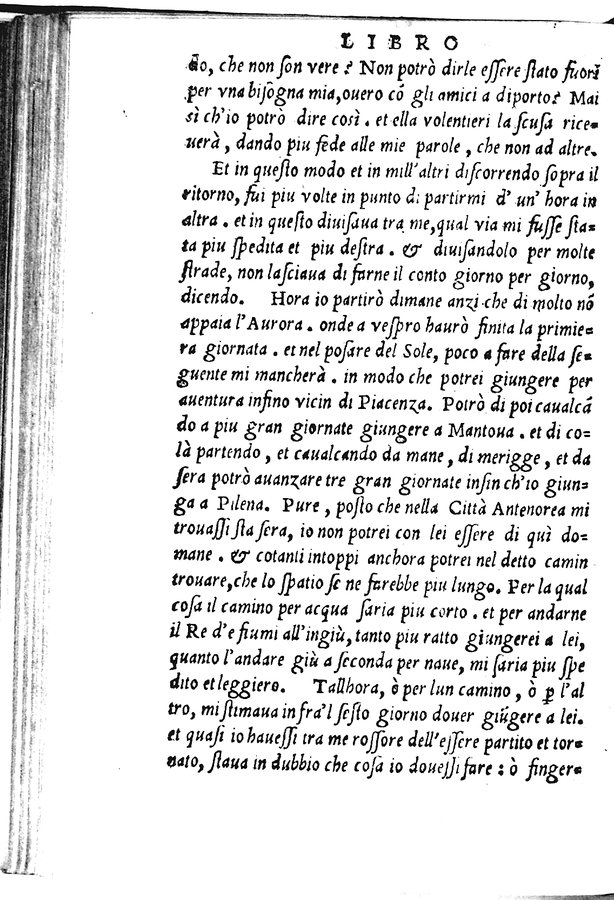 LIBRO
do, che non ſon vere? Non potrò dirle eſſere ſtato fuori
per vna biſogna mia, ouero cō gli amici a diporto? Mai
sì ch'io potrò dire così. et ella volentieri la ſcuſa rice-
uerà, dando piu fede alle mie parole, che non ad altre.
Et in queſto modo et in mill'altri diſcorrendo ſopra il
ritorno, fui piu volte in punto di partirmi d'un'hora in
altra. et in queſto diuiſaua tra me, qual via mi fuſſe ſta-
ta piu ſpedita et piu deſtra. & diuiſandolo per molte
ſtrade, non laſciaua di farne il conto giorno per giorno,
dicendo. Hora io partirò dimane anzi che di molto nō
appaia l'Aurora. onde a veſpro haurò finita la primie-
ra giornata. et nel poſare del Sole, poco a fare della ſe-
guente mi mancherà. in modo che potrei giungere per
auentura infino vicin di Piacenza. Potrò di poi caualcā
do a piu gran giornate giungere a Mantoua. et di co-
là partendo, et caualcando da mane, di merigge, et da
ſera potrò auanzare tre gran giornate inſin ch'io giun-
ga a Pilena. Pure, poſto che nella Città Antenorea mi
trouaſſi ſta ſera, io non potrei con lei eſſere di quì do-
mane. & cotanti intoppi anchora potrei nel detto camin
trouare, che lo ſpatio ſe ne farebbe piu lungo. Per la qual
coſa il camino per acqua ſaria piu corto. et per andarne
il Re d'e fiumi all'ingiù, tanto piu ratto giungerei a lei,
quanto l'andare giù a ſeconda per naue, mi ſaria piu ſpe
dito et leggiero. Tallhora, ò per lun camino, ò ꝑ l'al
tro, mi ſtimaua infra'l ſeſto giorno douer giūgere a lei.
et quaſi io haueſſi tra me roſſore dell'eſſere partito et tor-
nato, ſtaua in dubbio che coſa io doueſſi fare: ò finger-